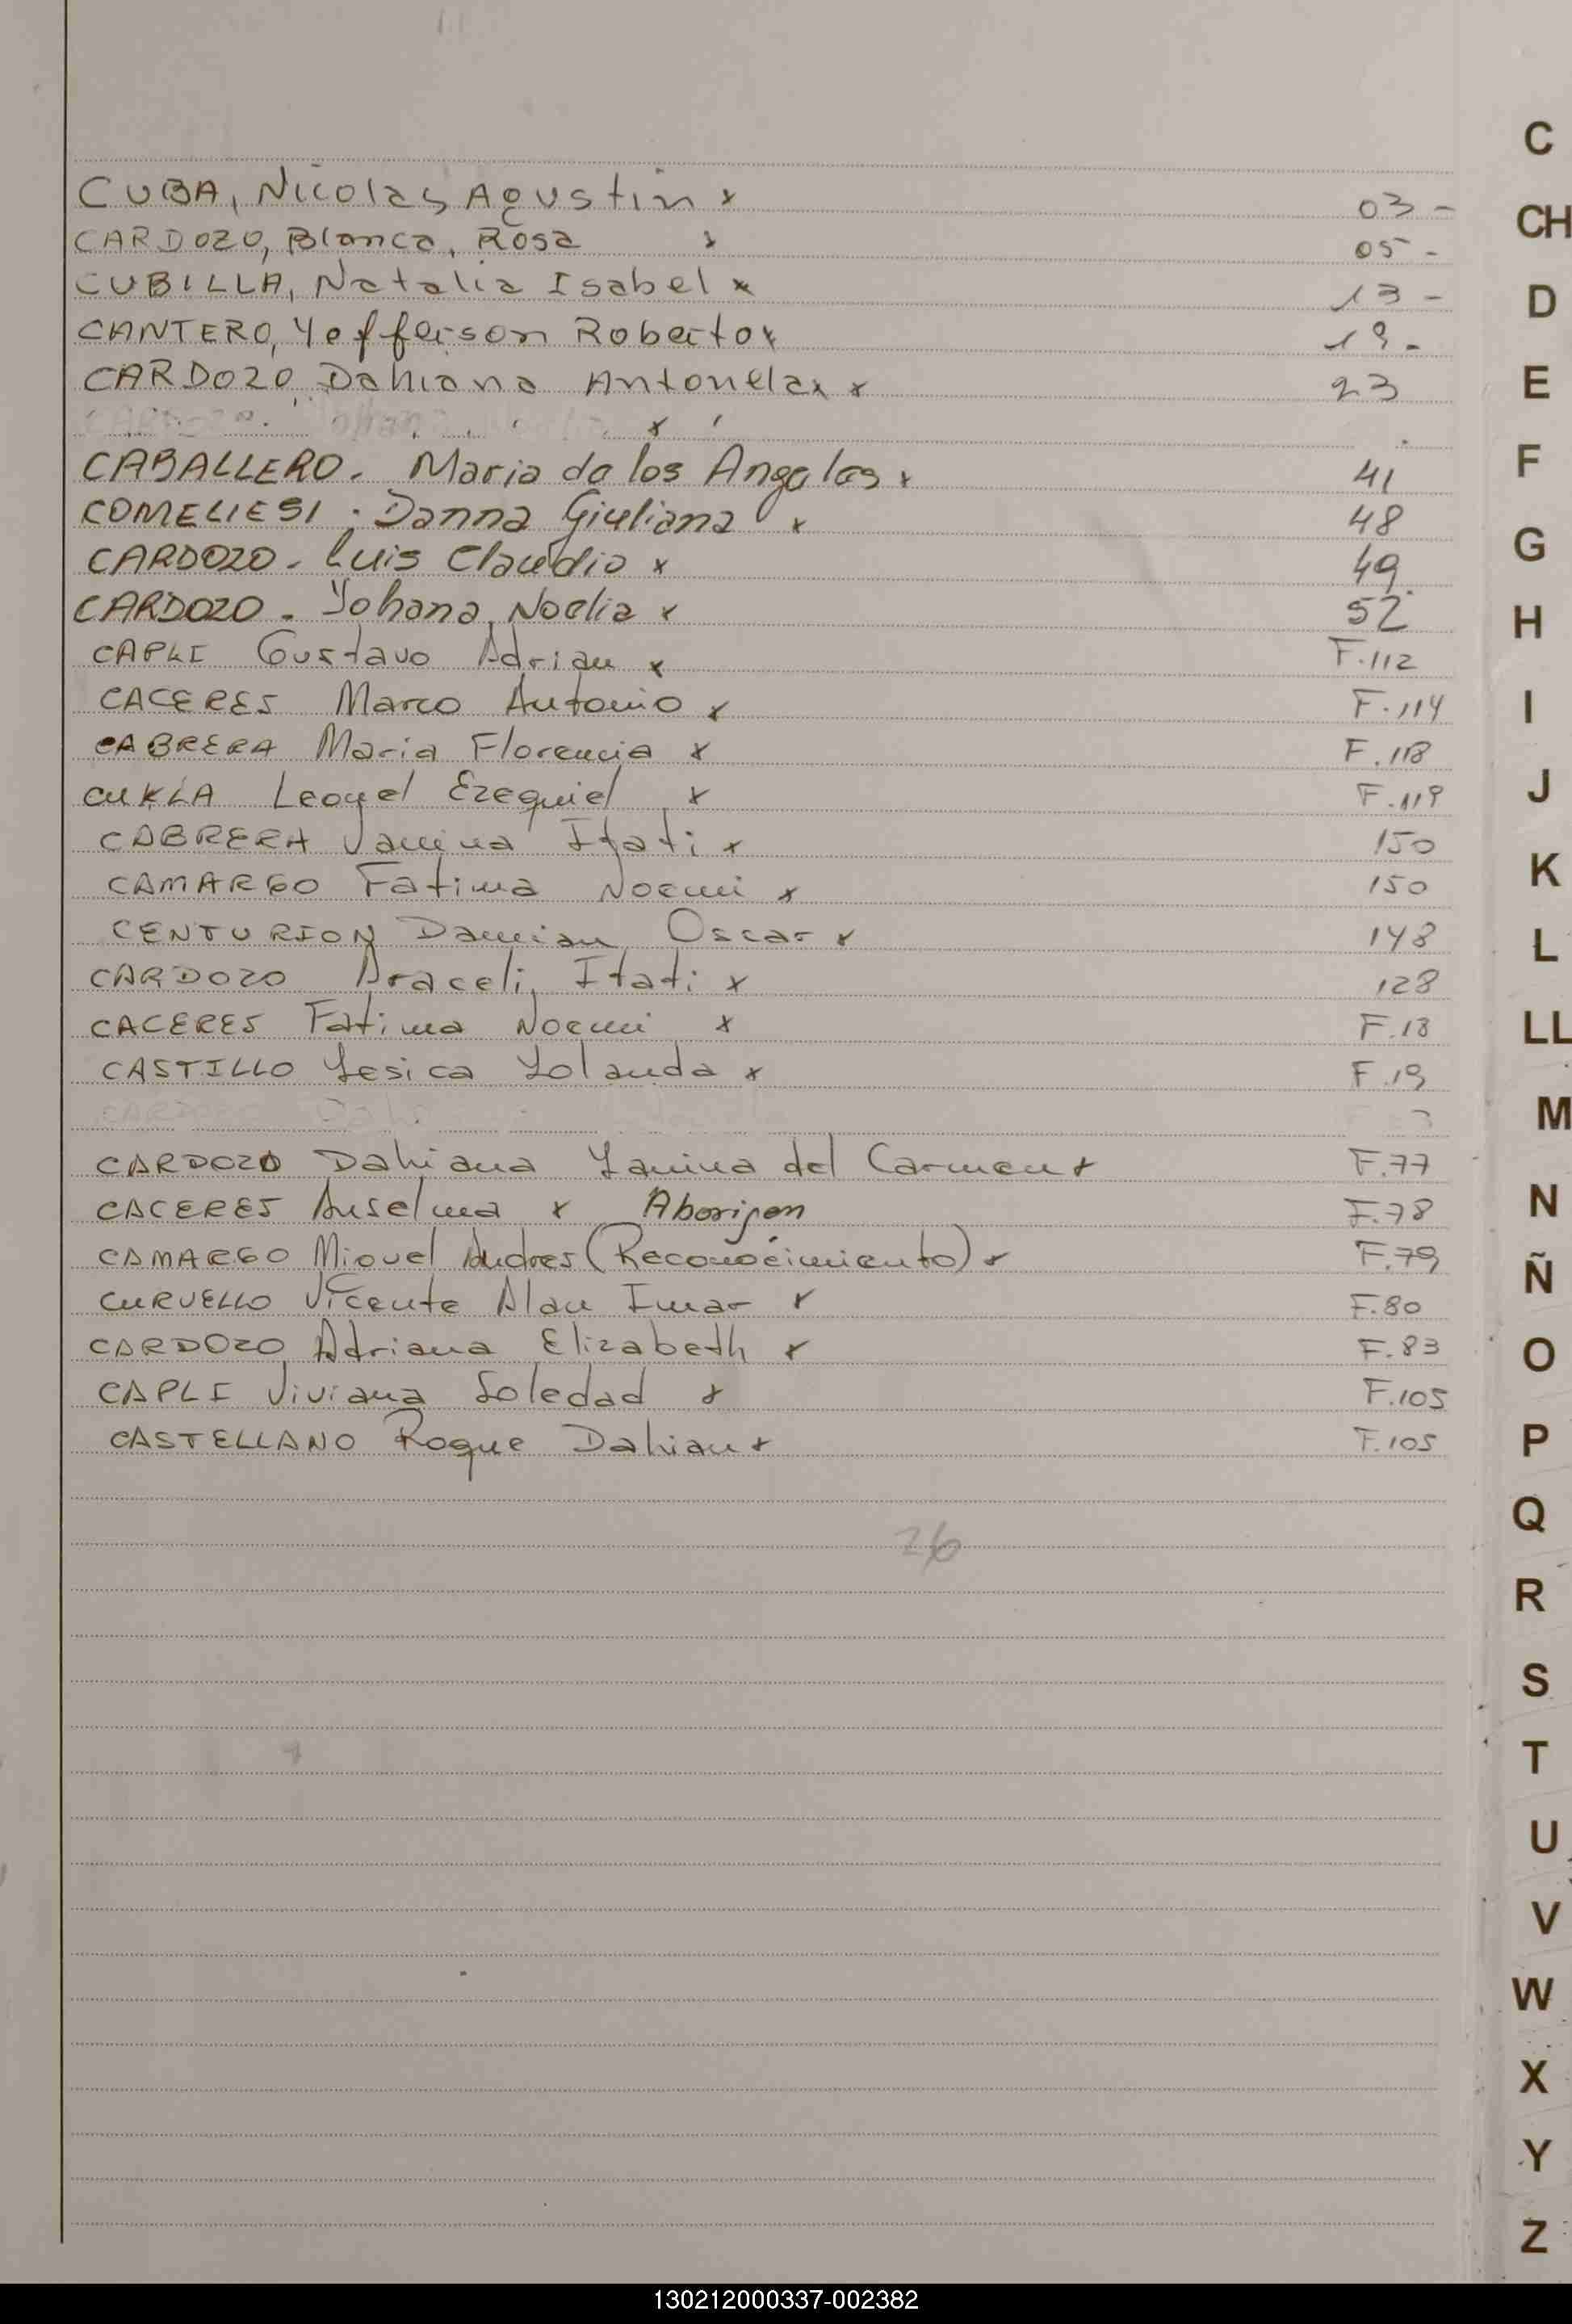 CUBA, Nicolas Agustin x 03 -
CARDOZO, Blanca, Rosa x 05 -
CUBILLA, Natalia Isabel x 13 -
CANTERO, Yefferson Roberto x 19 -
CARDOZO Dahiana Antonela x x 23
x
CABALLERO. Maria de los Angeles x 41
COMELIESI. Danna Giuliana x 48
CARDOZO - Luis Claudio x 49
CARDOZO - Yohana Noelia x 52
CAPLI Gustavo Adrian x F.112
CACERES Marco Antonio x F.114
CABRERA Maria Florencia x F.118
CUKLA Leonel Ezequiel x F.119
CABRERA Janina Itati x 150
CAMARGO Fatima Noemi x 150
CENTURION Damian Oscar x 148
CARDOZO Araceli Itati x 128
CACERES Fatima Noemi x F.18
CASTILLO Yesica Yolanda x F.19
CARDOZO Dahiana Yanina del Carmen x F.77
CACERES Anselma x Aborigen F.78
CAMARGO Miguel Andres (Reconocimiento) x F.79
CURVELLO Vicente Alan Imar x F.80
CARDOZO Adriana Elizabeth x F.83
CAPLI Viviana Soledad x F.105
CASTELLANO Roque Dahian x F.105
26
C
CH
D
E
F
G
H
I
J
K
L
LL
M
N
Ñ
O
P
Q
R
S
T
U
V
W
X
Y
Z
130212000337-002382